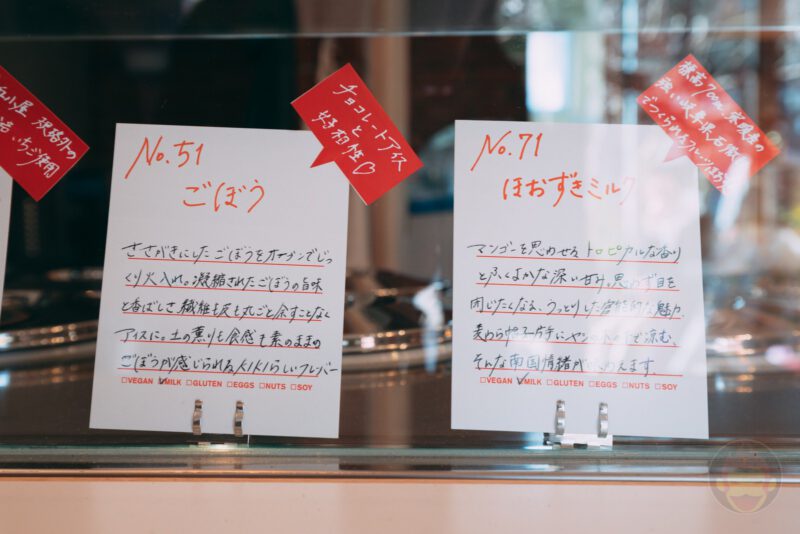 チョコレートアイス
と
好相性♡
No.51
ごぼう
ささがきにしたごぼうをオーブンでじっ
くり火入れ。凝縮されたごぼうの旨味
と香ばしさ、繊維も皮も丸ごと余すことなく
アイスに。土の薫りも食感も素のままの
ごぼうが感じられるKIKIらしいフレーバー
□VEGAN ☑MILK □GLUTEN □EGGS □NUTS □SOY
標高700m
強い岐阜県
No.71
ほおずきミルク
マンゴーを思わせるトロピカルな香り
とふくよかな深い甘み。思わず目を
閉じたくなる、うっとりした官能的な魅力。
麦わら帽子片手にヤシの木の下で涼む、
そんな南国情緒が味わえます
□VEGAN ☑MILK □GLUTEN □EGGS □NUTS □SOY